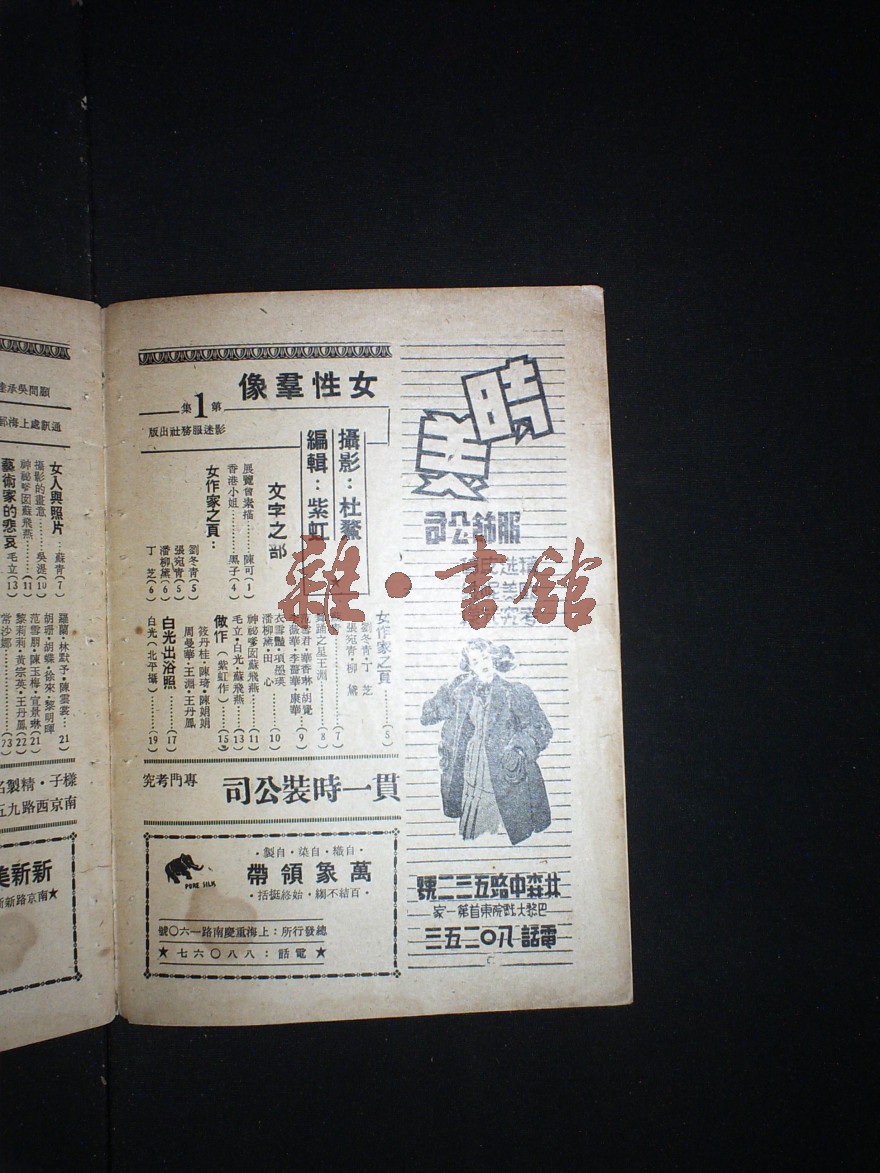 時
美
服飾公司
林森中路五三二號
巴黎大戲院東首第一家
電話八〇二五三
女性羣像
第1集
影迷服務社出版
攝影：杜鰲
編輯：紫虹
文字之部
展覽曾素描……陳可(1)
香港小姐……黑子(4)
女作家之頁：
劉冬青(5)
張宛青(5)
潘柳黛(6)
丁芝(6)
女作家之頁……(5)
劉冬青・丁芝
張宛青・柳黛
……(7)
舞踊之星王淵……(8)
范雪君・華香琳・胡覺
李薔華・李薇華・康華……(9)
衣雪豔・項墨瑛
潘柳黛・田心……(10)
神祕爹囡蘇飛燕……(11)
毛立・白光・蘇飛燕……(13)
做作(紫虹作)……(15)
筱丹桂・陳琦・陳娟娟
周曼華・王淵・王丹鳳
白光出浴照……(17)
白光(北平攝)……(19)
貫一時裝公司
專門考究
自織・自染・自製
萬象領帶
百結不縐・始終挺括
PURE SILK
總發行所：上海重慶南路一六〇號
★電話：八八〇六七★
顧問吳承達
通訊處上海郵
女人與照片……蘇青(7)
攝影的畫意……吳湜(10)
神祕爹囡蘇飛燕……(11)
藝術家的悲哀 毛立(13)
羅蘭・林默予・陳雲裳……21
胡珊・胡蝶・徐來・黎明暉
范雪朋・陳玉梅・宣景琳(21)
黎莉莉・黃宗英・王丹鳳(22)
常沙娜……(23)
樣子・精製名
南京西路九五
新新美
★南京路新新
雜・書館